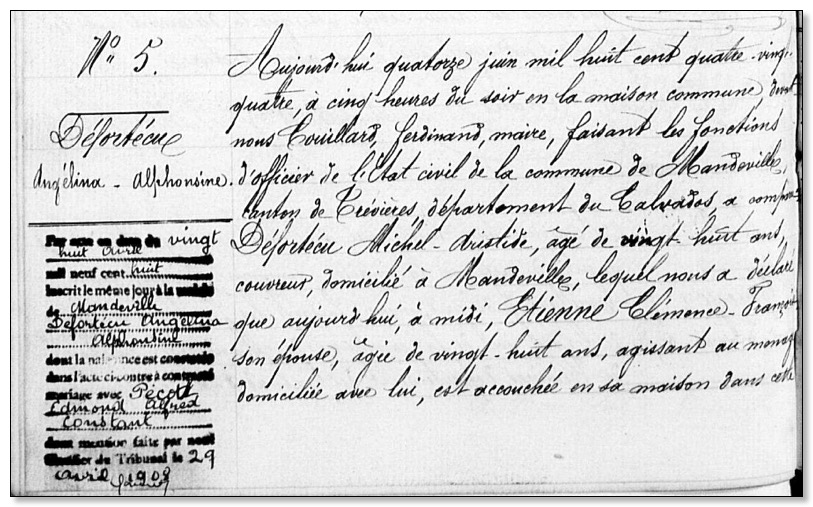 N° 5.
Défortécu
Angélina - Alphonsine.
Par acte en date du vingt
huit Avril
mil neuf cent huit
inscrit le même jour à la
de Mandeville
Defortécu Angélina
Alphonsine
dont la naissance est constatée
dans l'acte ci-contre a contracté
mariage avec Pécot
Edmond Alfred
Constant
dont mention faite par nous
Greffier du Tribunal le 29
avril
Aujourd'hui quatorze juin mil huit cent quatre-vingt
quatre, à cinq heures du soir en la maison commune devant
nous Couillard, Ferdinand, maire, faisant les fonctions
d'officier de l'État civil de la commune de Mandeville,
canton de Trévières, département du Calvados, a comparu
Défortécu Michel-Aristide, âgé de vingt-huit ans,
couvreur, domicilié à Mandeville, lequel nous a déclaré
que aujourd'hui, à midi, Etienne Clémence-Françoise
son épouse, âgée de vingt-huit ans, agissant au ménage
domiciliée avec lui, est accouchée en sa maison dans cette